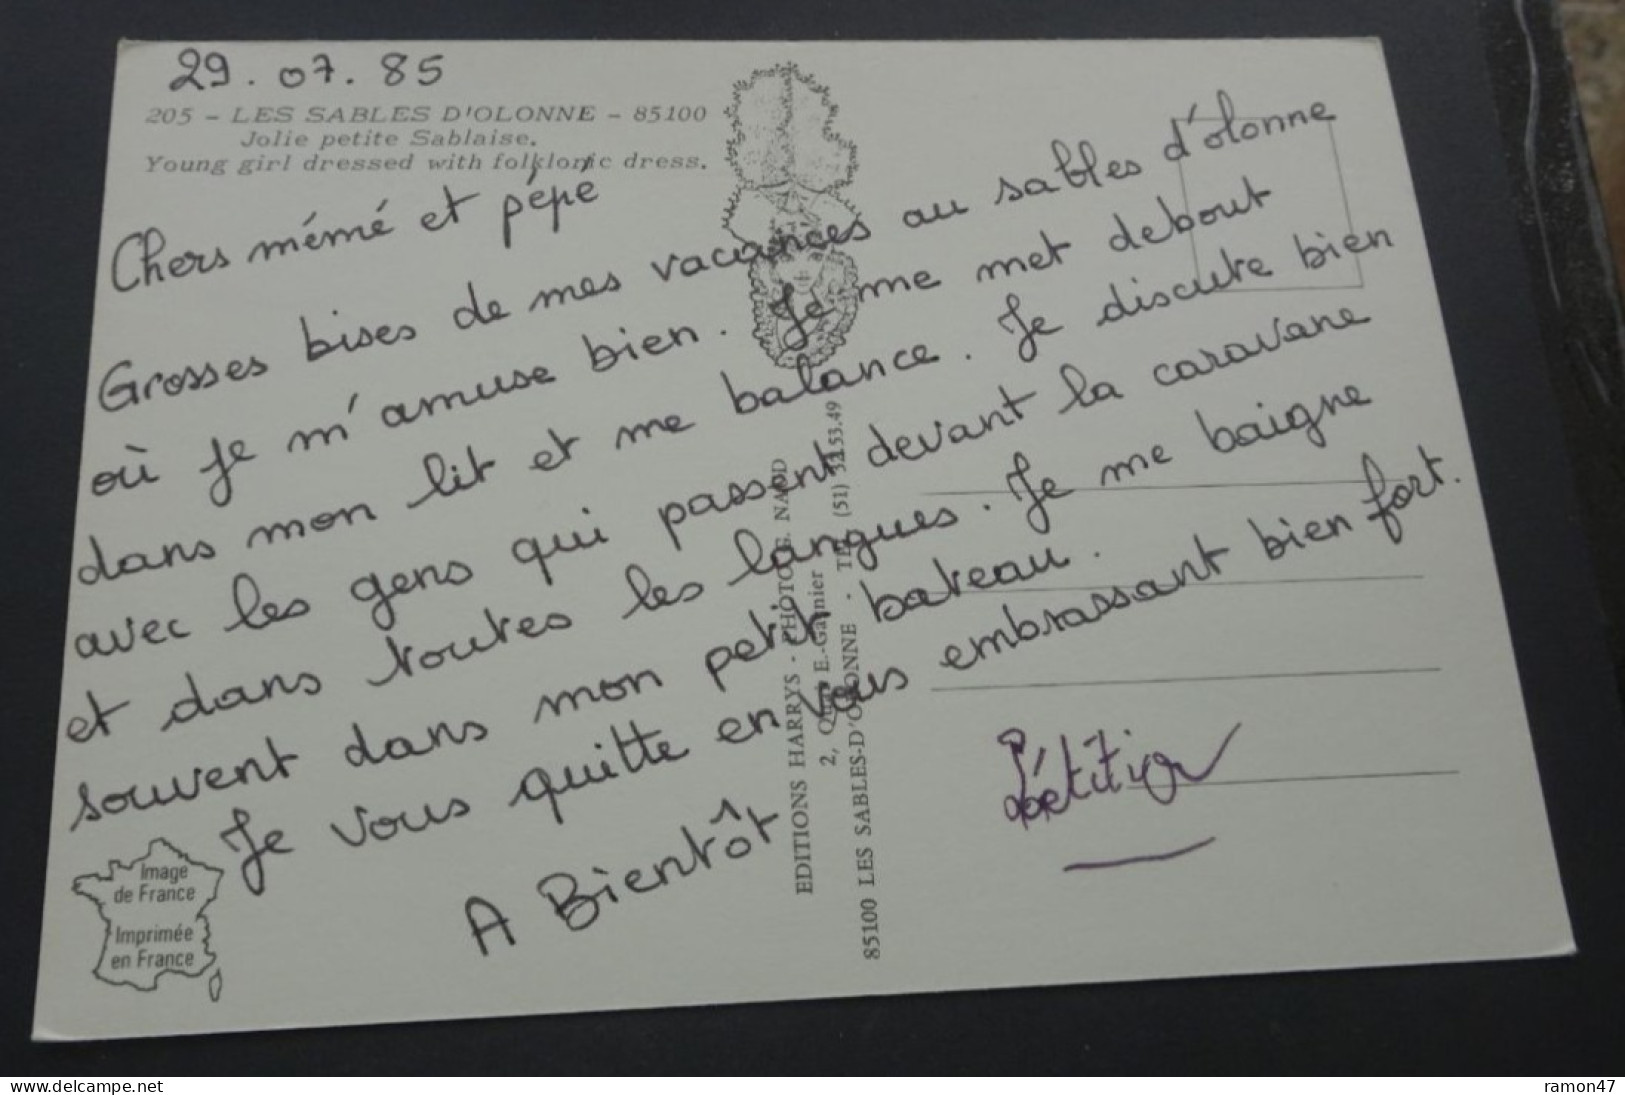 29.07.85
205 - LES SABLES D'OLONNE - 85100
Jolie petite Sablaise.
Young girl dressed with folkloric dress.
Chers mémé et pépé
Grosses bises de mes vacances au sables d'olonne
où je m'amuse bien. Je me met debout
dans mon lit et me balance. Je discute bien
avec les gens qui passent devant la caravane
et dans toutes les langues. Je me baigne
souvent dans mon petit bateau.
Je vous quitte en vous embrassant bien fort.
A Bientôt
EDITIONS HARRYS - PHOTO G. NAUD
2, Quai E.-Garnier
85100 LES SABLES-D'OLONNE - TEL. (51) 32.53.49
Image
de France
Imprimée
en France
www.delcampe.net
ramon47